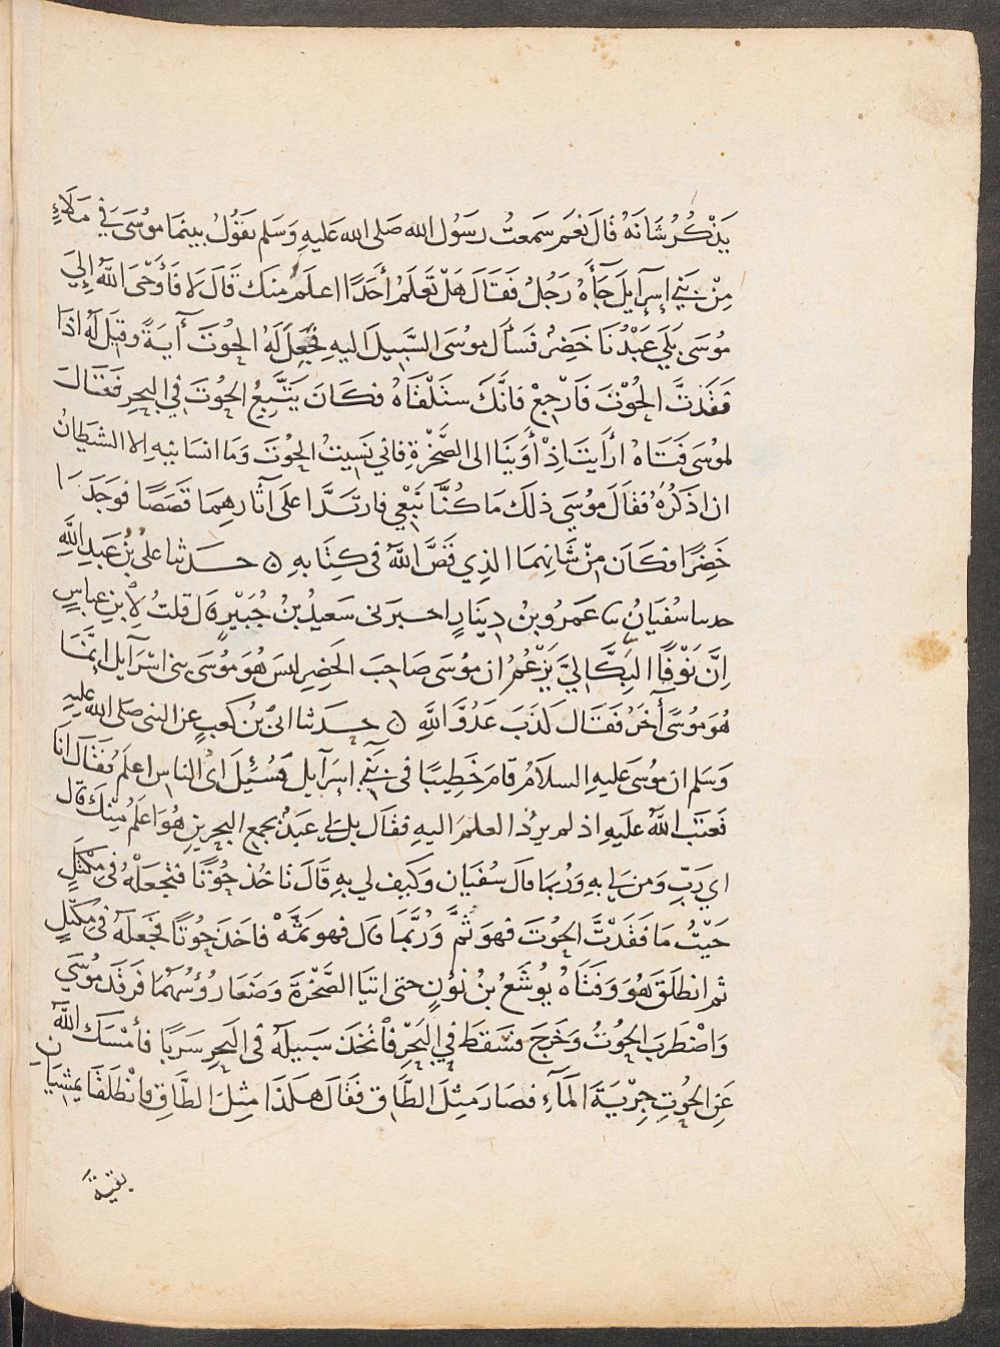 يَذْكُرُ شَانَهُ قَالَ نَعَم سَمِعتُ رَسُول الله صَلى الله عَليهِ وَسَلم يَقوُلُ بينمَا موُسَى فِي مَلَاءٍ
مِنْ بَنِي إسرَآيلَ جَآءَهُ رَجُلٌ فَقَالَ هَلْ تَعلَمُ أحَدًا اعلَمُ مِنكَ قَالَ لَا فَأَوْحَى اللّٰهُ إلِيَ
مُوسَى بَلَي عَبْدُنَا خَضِرٌ فَسأَل موُسَى السَّبيلَ اليهِ فجُعِلَ لَهُ الحوُتَ آيَةً وقيلَ لَهُ اذَا
فَقَدْتَّ الحُوْتَ فَارْجِعْ فَانَّكَ سَتَلْقَاهُ فكَانَ يَتَّبِعُ الحوُتَ فِي البحرِ فَقَالَ
لموُسَى فَتَاهُ ارَأيتَ إذْ أَوَيْنَا الى الصَّخْرَةِ فاني نَسِيتُ الحوُتَ وَمَا انسَانِيهِ الا الشيطَانُ
ان اذكُرُهُ فقَالَ موُسَي ذلكَ مَا كُنَّا نَبْغِي فارتَدَّا علَى آثارِهِمَا قَصَصًا فوَجَدَا
خَضِرًا فكَانَ مِنْ شَانِهِمَا الذِي قَصَّ اللّٰهُ فى كِتَابهِ ه حَدثنا علىُ بْنُ عَبدِ اللَّهِ
حدثنا سُفيَانُ ثنا عَمرُو بنُ دِينَارٍ اخبرَنى سَعيدُ بنُ جُبَيْرٍ قال قلتُ لِابنِ عبَاسٍ
اِنَّ نَوْفًا البِكَّالِيَّ يَزْعُمُ ان موُسَى صَاحِبَ الخَضِرِ ليسَ هوَ موُسَى بنى اسْرَآيل انَّمَا
هُوَ موُسًى آخَرُ فَقَال كَذَبَ عَدُوَّ اللَّهِ ه حَدثنا ابىُ بْنُ كَعبٍ عنِ النبى صَلى الله عليهِ
وَسَلم ان موُسَى عليهِ السلاَمُ قامَ خَطِيبًا فى بَنِي إسرَآيل فسُئِلَ اىُ الناسِ اعلَم فقَالَ انَا
فَعَتَبَ اللّٰهُ عليَهِ اذ لم يرُدَ العلمَ اليهِ فقَال بل لي عَبدٌ بمجمعِ البحرينِ هُوَ اعلَمُ مِنْكَ قال
اي رَبِّ وَمن لي بهِ وَرُبمَا قالَ سُفيَان وَكَيف لي بهِ قَالَ تاخُذ حُوْتًا فتجعَلُهُ فى مِكْتَلٍ
حَيْثُ مَا فَقَدْتَّ الحوُتَ فهوَ ثَمَّ وَرُبَّمَا قال فهوَ ثمَّهْ فاخذَ حوُتًا فجَعَلَهُ فى مِكْتَلٍ
ثم انطلَقَ هوَ وَفَتَاهُ يوُشَعُ بنُ نوُنٍ حتى اتيَا الصَّخْرَةَ وَضَعَا رُؤُسَهُمَا فَرقَدَ موُسَي
وَاضْطرَبَ الحوُتُ وَخَرجَ فسَقَطَ فِي البَحْرِ فَاتَّخَذَ سَبيلَهُ فى البَحرِ سَرَبًا فأمْسَكَ اللّٰهُ
عَنِ الحوُتِ جِرْيَةَ المَآءِ فصَارَ مِثْلَ الطَّاقِ فقَالَ هكَذَا مِثلَ الطَّاقِ فانْطَلَقَا يمْشيَانِ
بقيّةَ